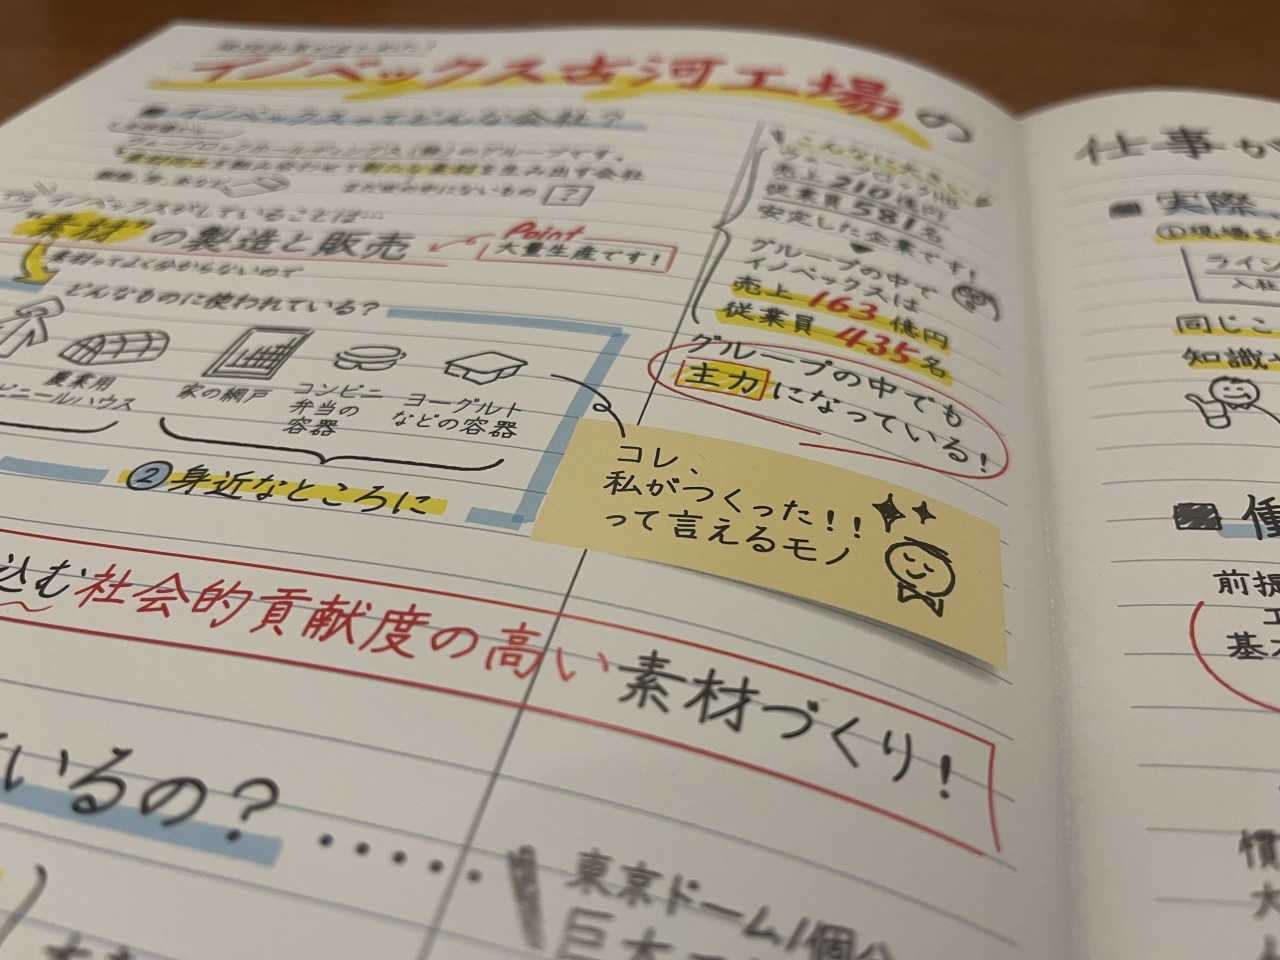 イノベックス古河工場の
■ イノベックスってどんな会社?
フェーブロックホールディングス(株)のグループです。
素材同士を組み合わせて新たな素材を生み出す会社
まだ世の中にないもの ?
イノベックスがしていることは…
"素材"の製造と販売
Point
大量生産です!
素材ってよく分からないので
どんなものに使われている?
農業用
ビニールハウス
家の網戸
コンビニ
弁当の
容器
ヨーグルト
などの容器
②身近なところに
こんなに大きい
売上210億円
従業員581名
安定した企業です!
グループの中で
イノベックスは
売上 163億円
従業員 435名
グループの中でも
主力になっている!
コレ、
私がつくった!!
って言えるモノ
込む社会的貢献度の高い素材づくり!
ているの? ・・・・・
東京ドーム1個分
巨大
仕事が
■ 実際
①現場を
ライン
入社
同じこ
知識や
■ 働
前提
エ
基本
慣
大